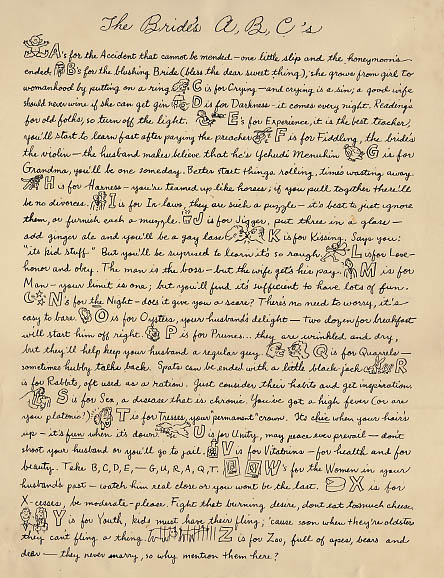 The Bride's A, B, C's
A's for the Accident that cannot be mended - one little slip and the honeymoon's
ended. B's for the blushing Bride (bless the dear sweet thing), she grows from girl to
womanhood by putting on a ring. C is for Crying - and crying is a sin; a good wife
should never wine if she can get gin. D is for Darkness - it comes every night. Reading's
for old folks, so turn off the light. E's for Experience, it is the best teacher,
you'll start to learn fast after paying the preacher. F is for Fiddling, the bride's
the violin - the husband makes believe that he's Yehudi Menuhin. G is for
Grandma, you'll be one someday. Better start things rolling, time's wasting away.
H is for Harness - you're teamed up like horses; if you pull together there'll
be no divorces. I is for In-laws, they are such a puzzle - it's best to just ignore
them, or furnish each a muzzle. J is for Jigger, put three in a glass -
add ginger ale and you'll be a gay lass. K is for Kissing. Says you:
"its kid stuff" But you'll be surprised to learn it's so rough. L is for Love-
honor and obey. The man is the boss - but the wife gets his pay. M is for
Man - your limit is one; but you'll find it's sufficient to have lots of fun.
N's for the Night - does it give you a scare? There's no need to worry, it's
easy to bare. O is for Oysters, your husband's delight - Two dozen for breakfast
will start him off right. P is for Prunes... they are wrinkled and dry,
but they'll help keep your husband a regular guy. Q is for Quarrels -
sometimes hubby talks back. Spats can be ended with a little black-jack. R
is for Rabbits, oft used as a ration. Just consider their habits and get inspiration.
S is for Sex, a disease that is chronic. You've got a high fever (or are
you platonic?) T is for Tresses, your "permanent" crown. It's chic when your hair's
up - it's fun when it's down. U is for Unity, may peace ever prevail - don't
shoot your husband or you'll go to jail. V is for Vitamins - for health and for
beauty. Take B, C, D, E, - G, U, R, A, Q, T. W's for the Women in your
husband's past - watch him real close or you wont be the last. X is for
X-cesses, be moderate - please. Fight that burning desire, dont eat too much cheese.
Y is for Youth, kids must have their fling; 'cause soon when they're oldsters
they cant fling a thing. Z is for Zoo, full of apes, bears and
deer - they never marry, so why mention them here?